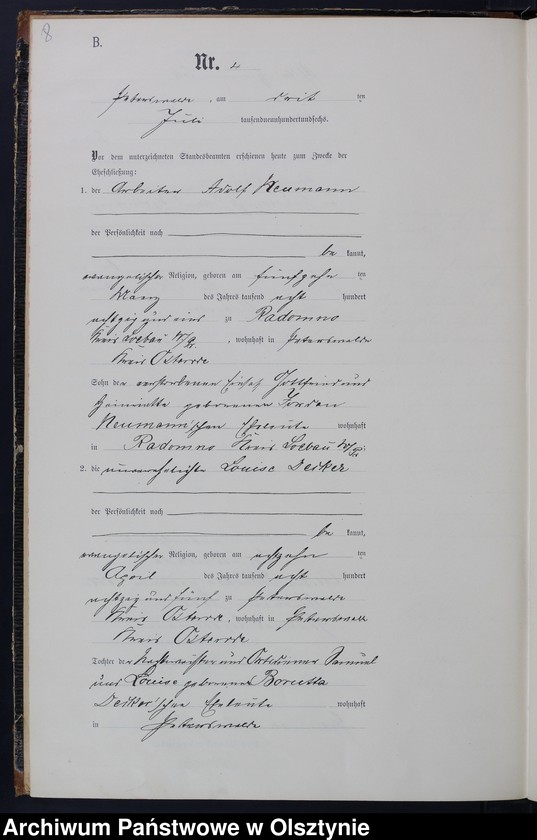 8
B.
Nr. 2
Peterswalde, am drei ten
Juli tausendneunhundertundsechs.
Vor dem unterzeichneten Standesbeamten erschienen heute zum Zwecke der
Eheschließung:
1. der Arbeiter Adolf Neumann
der Persönlichkeit nach
be kannt,
evangelischer Religion, geboren am fünfzehn ten
Maerz des Jahres tausend acht hundert
achtzig und eins zu Radomno
Kreis Loebau W/Pr , wohnhaft in Peterswalde
Kreis Osterode
Sohn der verstorbenen Gottfried und
Heinriette geborenen Jordan
Neumann'schen Eheleute wohnhaft
in Radomno Kreis Loebau W/Pr.
2. die unverehelichte Louise Deiker
der Persönlichkeit nach
be kannt,
evangelischer Religion, geboren am achtzehn ten
April des Jahres tausend acht hundert
achtzig und fünf zu Peterswalde
Kreis Osterode, wohnhaft in Peterswalde
Kreis Osterode
Tochter der Nachtwächter und Ortsdiener Samuel
und Louise geborenen Borutta
Deiker'schen Eheleute wohnhaft
in Peterswalde
Archiwum Państwowe w Olsztynie